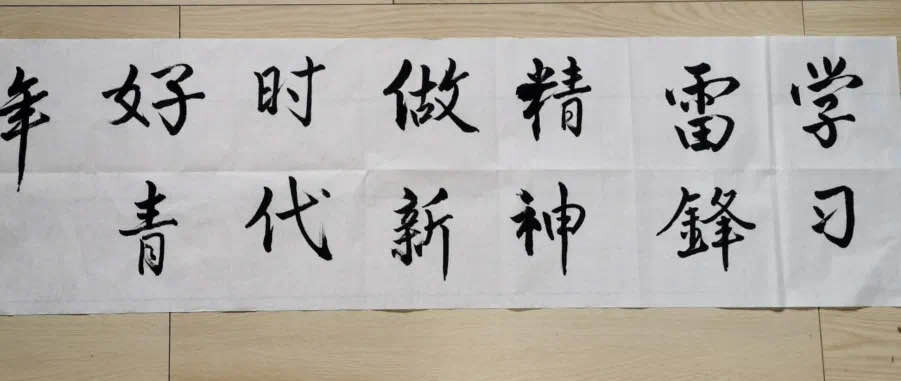 学习
雷鋒
精神
做新
时代
好青
年